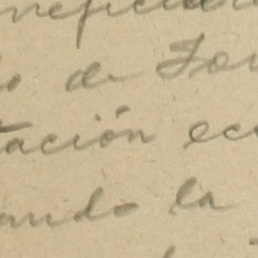 neficien
o de For
tación ec
ando la